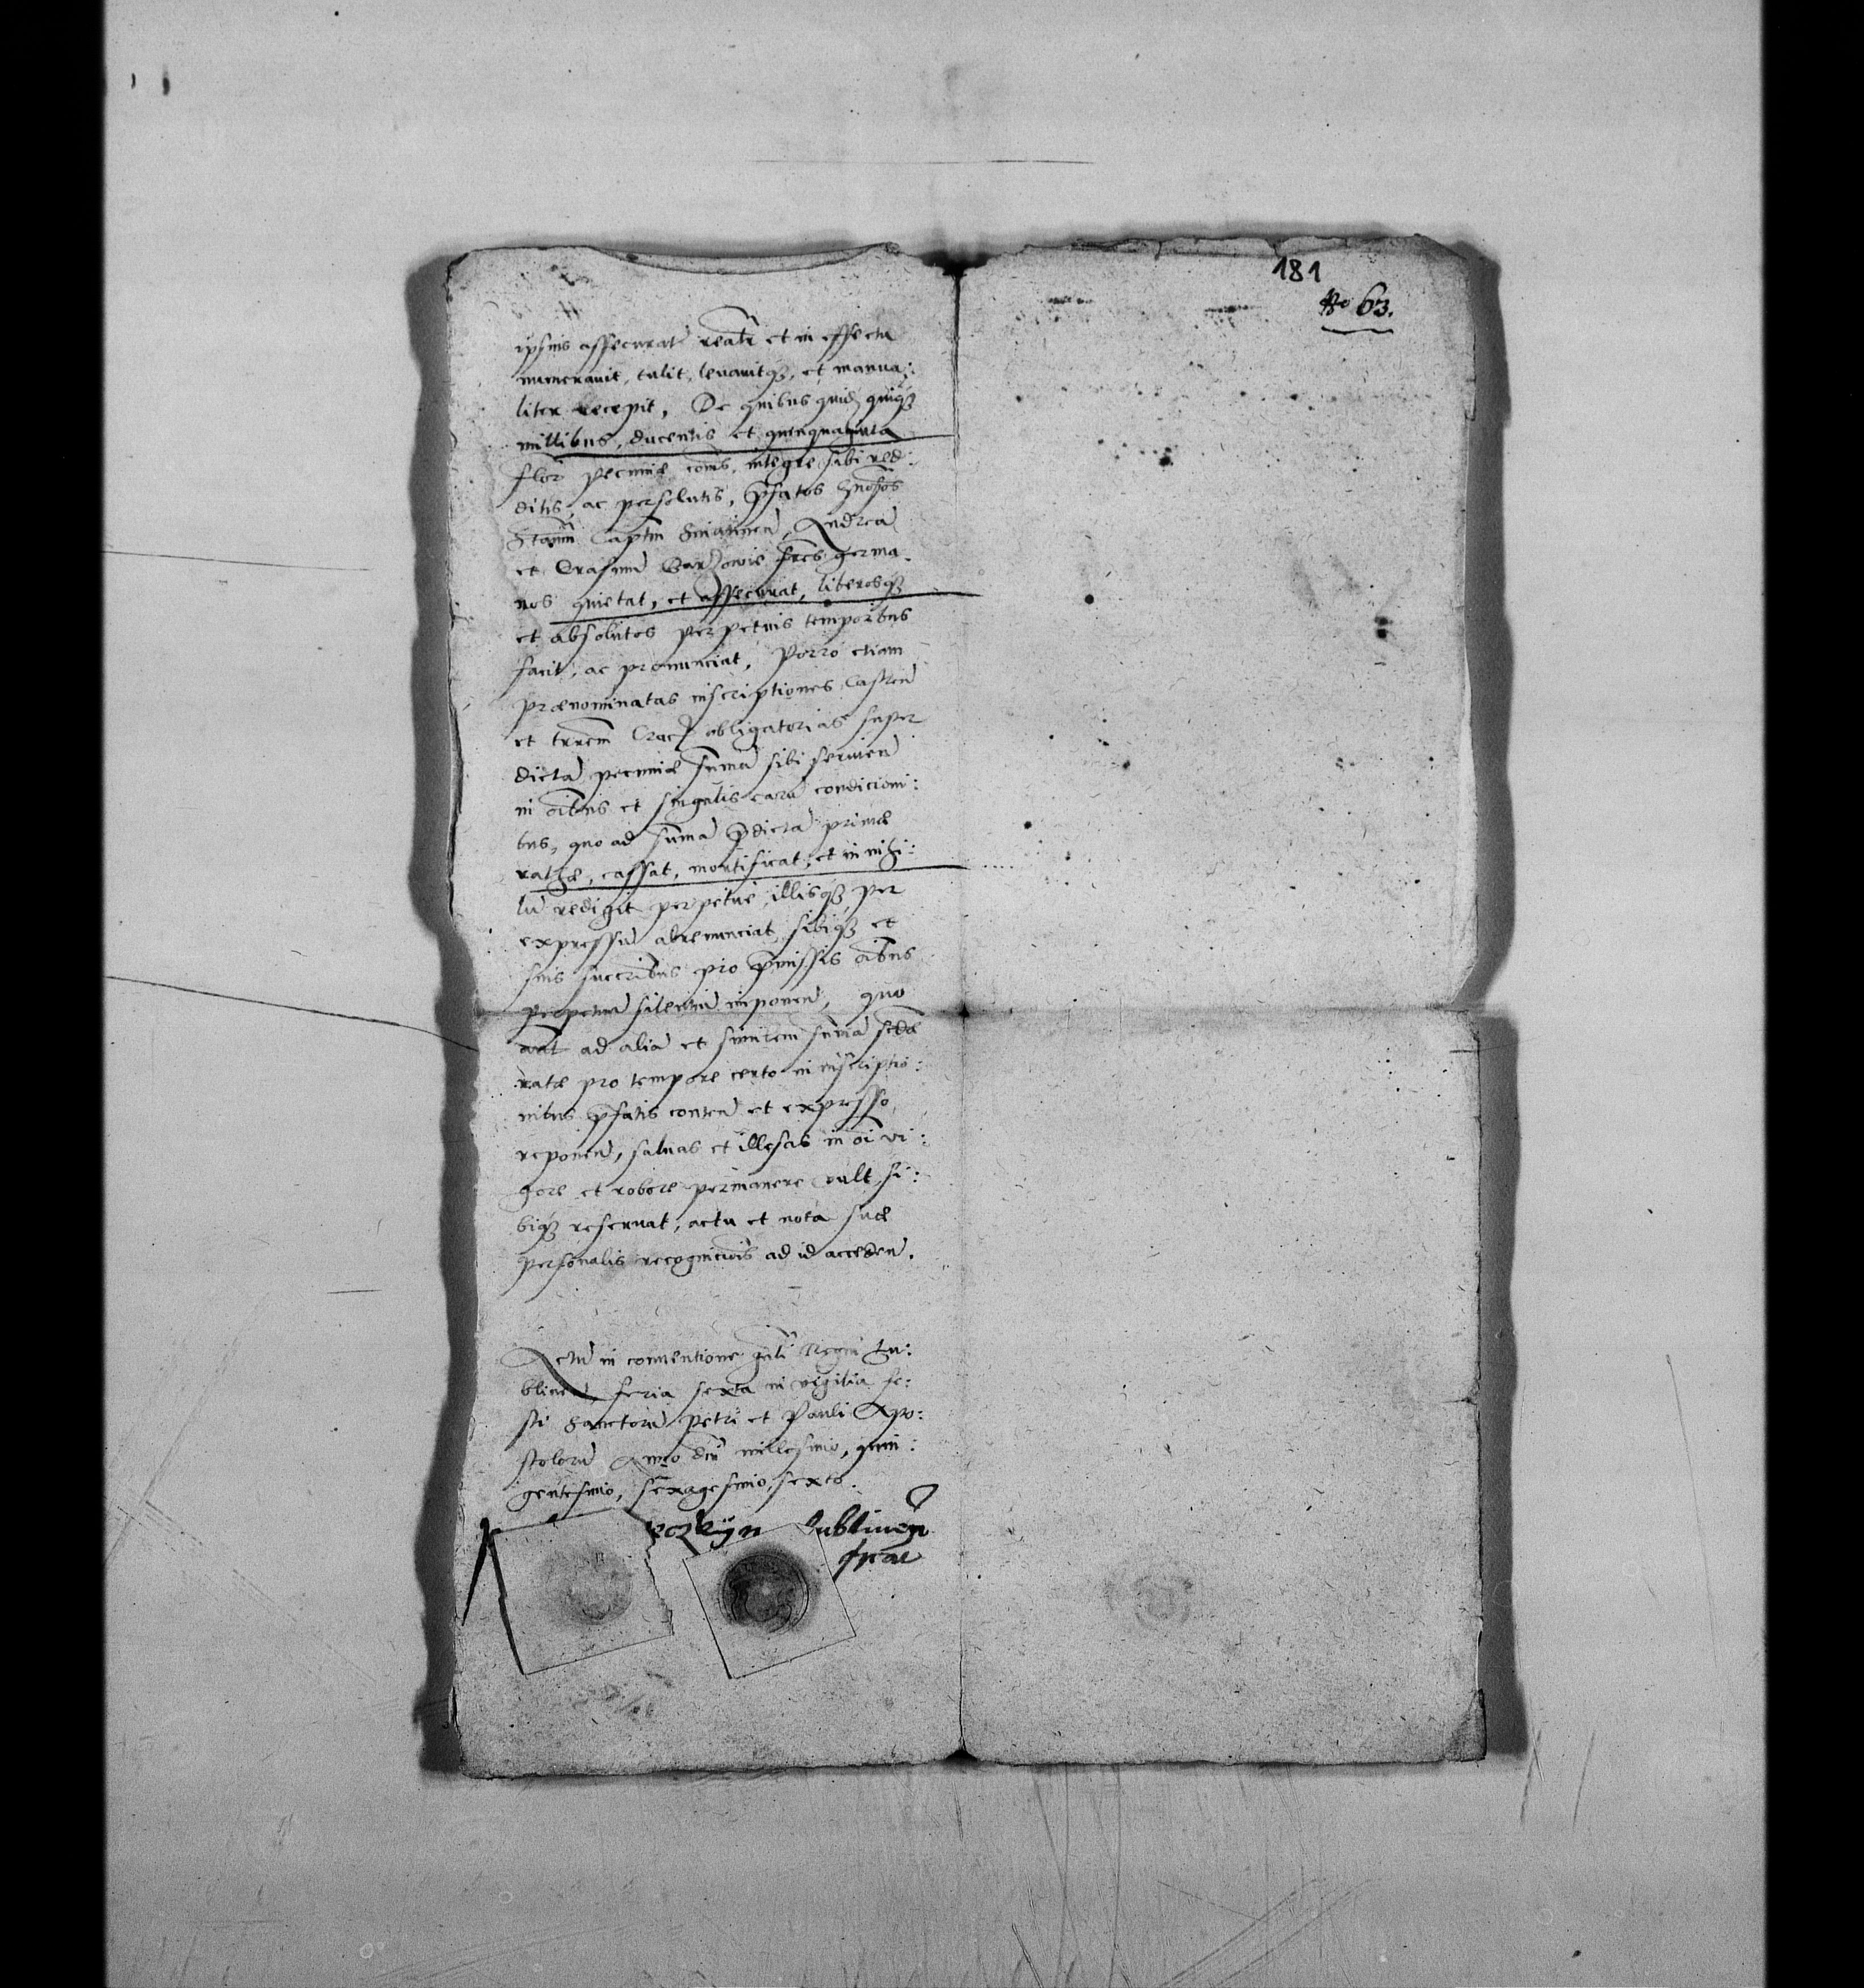 181
No 63.
ipsius assecurat realr et in effectu
numeravit, tulit, levavitqz, et manua:
liter recepit, De quibus quid quiqz
millibus, ducentis et quinquaginta
flor pecuniæ cois, integre sibi red:
ditis, ac persolutis, pfatos Gnosos
Stanm Captm Sniatinen, Andrea
et Erasmu fres germa.
nos quietat, et assecurat, liberosqz
et absolutos perpetuis temporibus
facit, ac pronunciat, Porro etiam
prænominatas inscriptiones Castren
et trrem Crac obligatorias super
dicta pecuniæ suma sibi servien
in oibus et singulis earu condicioni:
bus, quo ad suma pdicta primæ
rathæ, cassat, mortificat, et in nihi:
lu redigit perpetue, illisqz per
expressu abrenunciat, sibiqz et
suis succribus pro pmissis oibus
perpetuu silentiu imponen, quo
aut ad alia et similem suma scdæ
ratæ pro tempore certo in inscriptio:
nibus pfatis conten et expresso
reponen, salvas et illesas in oi vi:
gore et robore permanere vult, si:
biqz reservat, actu et nota suæ
personalis recognicois ad id acceden.
Actu in conventione gnli Regni Lu:
blinen feria sexta in vigilia fe:
sti Sanctoru Petri et Pauli Apo:
stoloru Anno dni millesimo, quin:
gentesimo, sexagesimo, sexto.
Lublinen